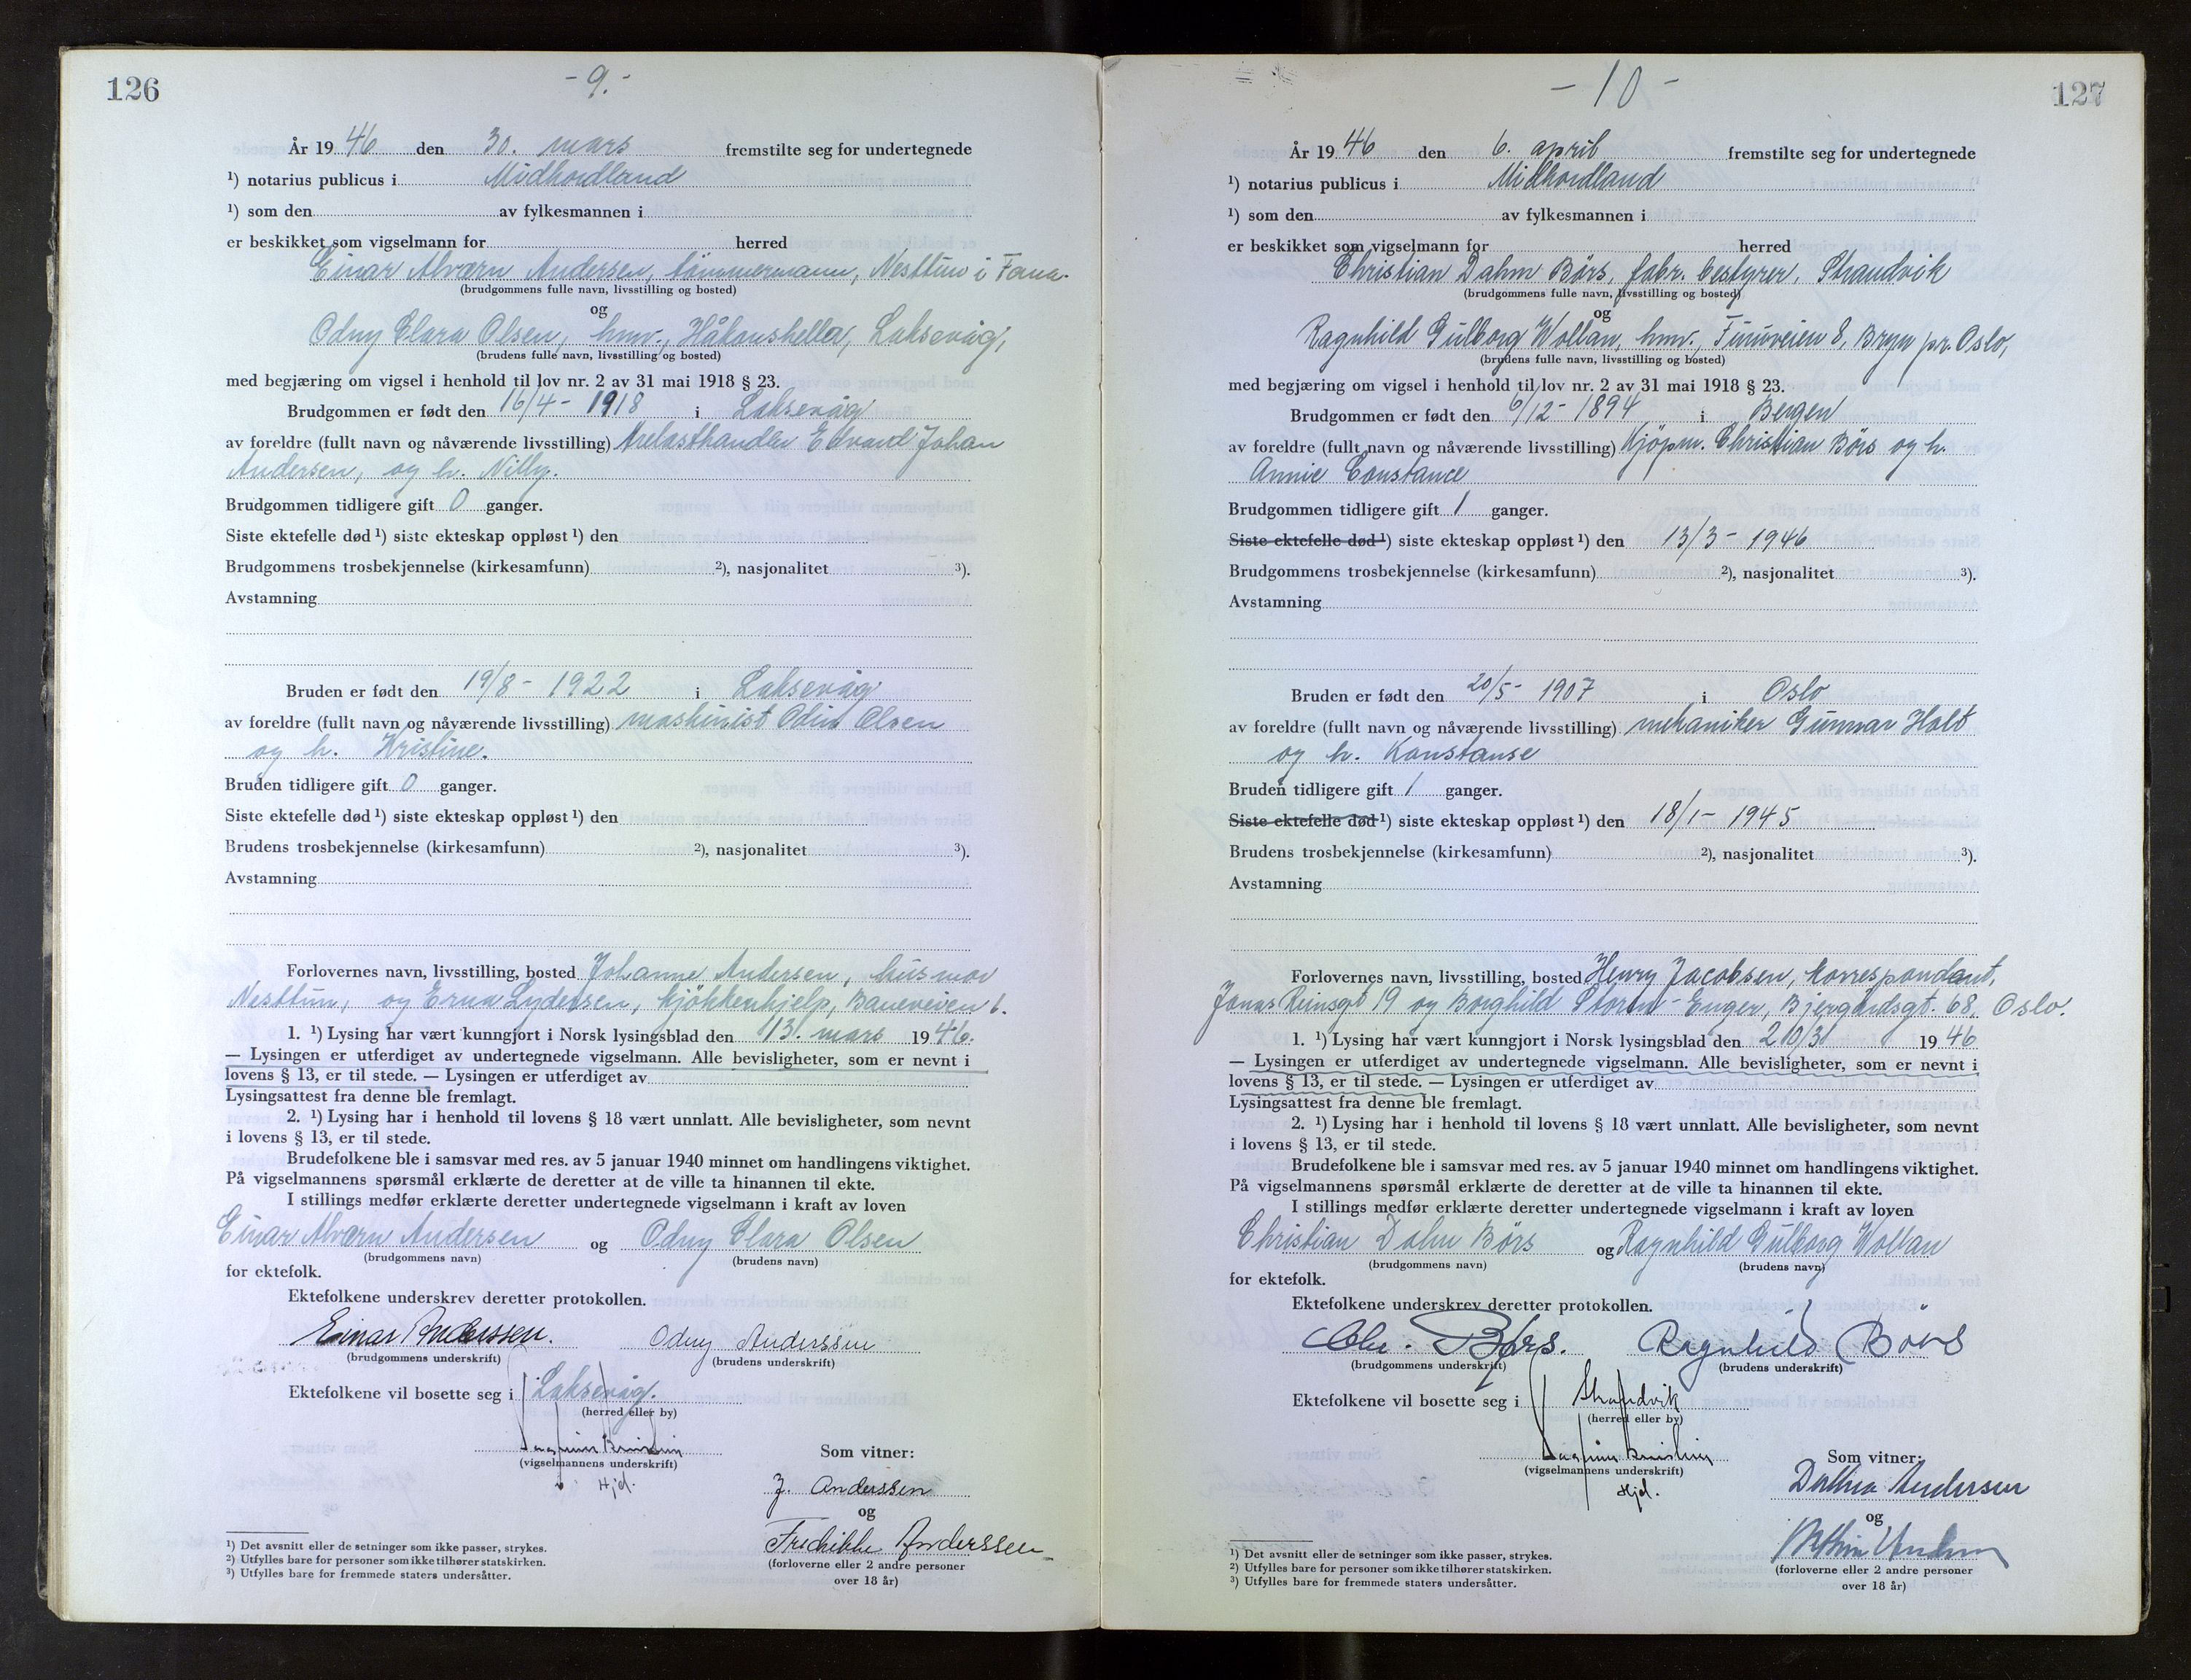 126
- 9. -
År 19 46 den 30. mars fremstilte seg for undertegnede
¹) notarius publicus i Midhordland
¹) som den av fylkesmannen i
er beskikket som vigselmann for herred
Einar Alværn Andersen, tømmermann, Nesttun i Fana.
(brudgommens fulle navn, livsstilling og bosted)
og
Odny Clara Olsen, hmv., Håkonshella, Laksevåg,
(brudens fulle navn, livsstilling og bosted)
med begjæring om vigsel i henhold til lov nr. 2 av 31 mai 1918 § 23.
Brudgommen er født den 16/4 - 1918 i Laksevåg
av foreldre (fullt navn og nåværende livsstilling) trelasthandler Edvard Johan
Andersen, og h. Nilly.
Brudgommen tidligere gift 0 ganger.
Siste ektefelle død ¹) siste ekteskap oppløst ¹) den
Brudgommens trosbekjennelse (kirkesamfunn) ²), nasjonalitet ³).
Avstamning
Bruden er født den 19/8 - 1922 i Laksevåg
av foreldre (fullt navn og nåværende livsstilling) maskinist Odin Olsen
og h. Kristine.
Bruden tidligere gift 0 ganger.
Siste ektefelle død ¹) siste ekteskap oppløst ¹) den
Brudens trosbekjennelse (kirkesamfunn) ²), nasjonalitet ³).
Avstamning
Forlovernes navn, livsstilling, bosted Johanne Andersen, husmor
Nesttun, og Erna Lydersen, kjøkkenhjelp, Baneveien 6.
1. ¹) Lysing har vært kunngjort i Norsk lysingsblad den 13. mars 19 46.
— Lysingen er utferdiget av undertegnede vigselmann. Alle bevisligheter, som er nevnt i
lovens § 13, er til stede. — Lysingen er utferdiget av
Lysingsattest fra denne ble fremlagt.
2. ¹) Lysing har i henhold til lovens § 18 vært unnlatt. Alle bevisligheter, som nevnt
i lovens § 13, er til stede.
Brudefolkene ble i samsvar med res. av 5 januar 1940 minnet om handlingens viktighet.
På vigselmannens spørsmål erklærte de deretter at de ville ta hinannen til ekte.
I stillings medfør erklærte deretter undertegnede vigselmann i kraft av loven
Einar Alværn Andersen og Odny Clara Olsen
(brudgommens navn) (brudens navn)
for ektefolk.
Ektefolkene underskrev deretter protokollen.
Einar Anderssen. Odny Anderssen
(brudgommens underskrift) (brudens underskrift)
Ektefolkene vil bosette seg i Laksevåg.
(herred eller by)
Som vitner:
(vigselmannens underskrift)
Hjd.
J. Anderssen
og
Fredrikke Anderssen
(forloverne eller 2 andre personer
over 18 år)
¹) Det avsnitt eller de setninger som ikke passer, strykes.
²) Utfylles bare for personer som ikke tilhører statskirken.
³) Utfylles bare for fremmede staters undersåtter.
127
- 10 -
År 19 46 den 6. april fremstilte seg for undertegnede
¹) notarius publicus i Midhordland
¹) som den av fylkesmannen i
er beskikket som vigselmann for herred
Christian Dahm Børs, fabr. bestyrer, Strandvik
(brudgommens fulle navn, livsstilling og bosted)
og
Ragnhild Gulborg Wollan, hmv., Furuveien 8, Bryn pr. Oslo,
(brudens fulle navn, livsstilling og bosted)
med begjæring om vigsel i henhold til lov nr. 2 av 31 mai 1918 § 23.
Brudgommen er født den 6/12 - 1894 i Bergen
av foreldre (fullt navn og nåværende livsstilling) Kjøpm. Christian Børs og h.
Annie Constance
Brudgommen tidligere gift 1 ganger.
Siste ektefelle død ¹) siste ekteskap oppløst ¹) den 13/3 - 1946
Brudgommens trosbekjennelse (kirkesamfunn) ²), nasjonalitet ³).
Avstamning
Bruden er født den 20/5 - 1907 i Oslo
av foreldre (fullt navn og nåværende livsstilling) mekaniker Gunnar Holt
og h. Konstanse
Bruden tidligere gift 1 ganger.
Siste ektefelle død ¹) siste ekteskap oppløst ¹) den 18/1 - 1945
Brudens trosbekjennelse (kirkesamfunn) ²), nasjonalitet ³).
Avstamning
Forlovernes navn, livsstilling, bosted Henry Jacobsen, korrespondant,
Jonas Reinsgt 19 og Borghild Storm-Enger, Bjergårdsgt. 68, Oslo.
1. ¹) Lysing har vært kunngjort i Norsk lysingsblad den 20/3 19 46
— Lysingen er utferdiget av undertegnede vigselmann. Alle bevisligheter, som er nevnt i
lovens § 13, er til stede. — Lysingen er utferdiget av
Lysingsattest fra denne ble fremlagt.
2. ¹) Lysing har i henhold til lovens § 18 vært unnlatt. Alle bevisligheter, som nevnt
i lovens § 13, er til stede.
Brudefolkene ble i samsvar med res. av 5 januar 1940 minnet om handlingens viktighet.
På vigselmannens spørsmål erklærte de deretter at de ville ta hinannen til ekte.
I stillings medfør erklærte deretter undertegnede vigselmann i kraft av loven
Christian Dahm Børs og Ragnhild Gulborg Wollan
(brudgommens navn) (brudens navn)
for ektefolk.
Ektefolkene underskrev deretter protokollen.
Chr. Børs. Ragnhild Börs
(brudgommens underskrift) (brudens underskrift)
Ektefolkene vil bosette seg i Strandvik
(herred eller by)
Som vitner:
(vigselmannens underskrift)
Hjd.
Dorthea Andersen
og
(forloverne eller 2 andre personer
over 18 år)
¹) Det avsnitt eller de setninger som ikke passer, strykes.
²) Utfylles bare for personer som ikke tilhører statskirken.
³) Utfylles bare for fremmede staters undersåtter.